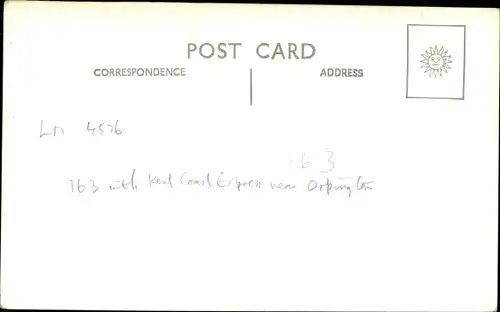 POST CARD
CORRESPONDENCE ADDRESS
LM 4576
163
163 with Kent Coast Express near Orpington